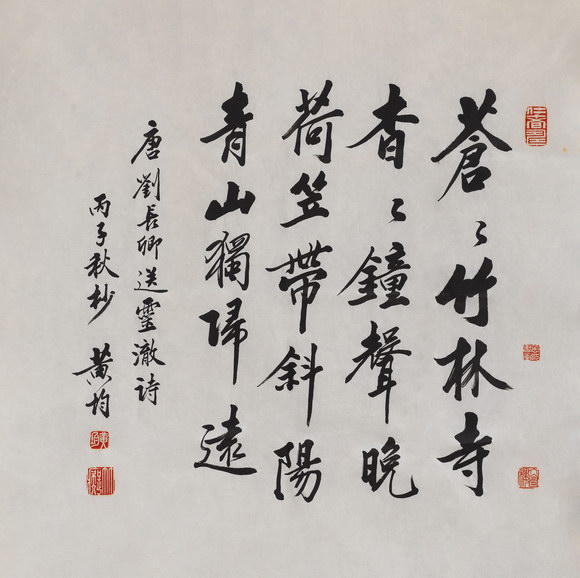 蒼〻竹林寺
杳〻鐘聲晚
荷笠帶斜陽
青山獨帰遠
唐劉長卿送靈澈詩
丙子秋杪 黃均